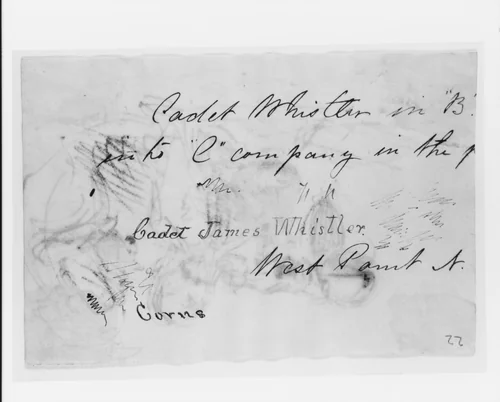 Cadet Whistler in "B"
into "C" company in the
Cadet James Whistler
West Point N.
Corns
22